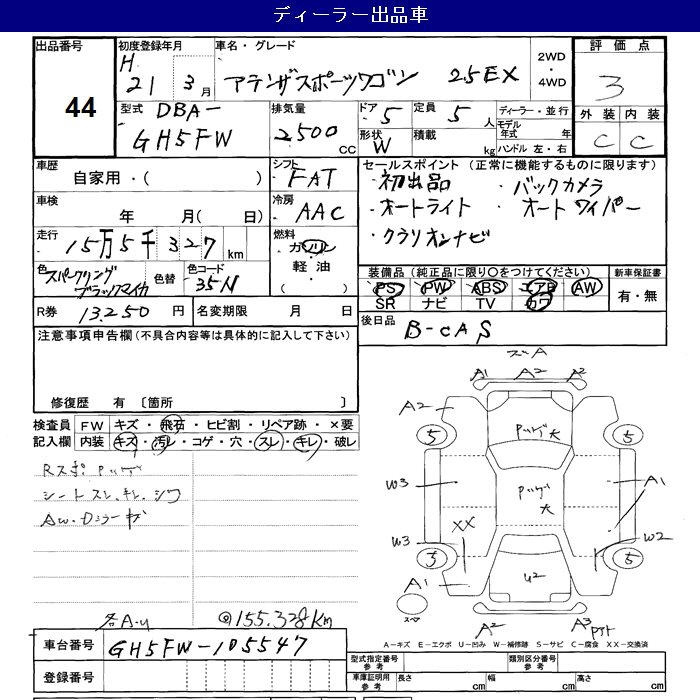 ディーラー出品車
出品番号 44
初度登録年月 H 21 3月
車名・グレード アテンザスポーツワゴン 25EX
2WD ・ 4WD
評価点 3
外装 内装
C C
型式 DBA- GH5FW
排気量 2500 CC
ドア 5
形状 W
定員 5 人
積載 kg
ディーラー・並行
モデル年式 年
ハンドル 左・右
車歴 自家用・( )
シフト FAT
車検 年 月( 日)
冷房 AAC
走行 15万5千327 km
燃料 ガソリン ・ 軽油 ・ ( )
色 スパークリングブラックマイカ
色替
色コード 35N
セールスポイント (正常に機能するものに限ります)
・初出品 ・バックカメラ
・オートライト ・オートワイパー
・クラリオンナビ
装備品 (純正品に限り○をつけてください) 新車保証書
PS PW ABS エアB AW 有・無
SR ナビ TV カワ
R券 13250 円 名変期限 月 日
後日品 B-CAS
注意事項申告欄 (不具合内容等は具体的に記入して下さい)
修復歴 有 〔箇所 〕
検査員 FW キズ・飛石・ヒビ割・リペア跡・×要
記入欄 内装 キズ・汚レ・コゲ・穴・スレ・キレ・破レ
シートスレ、キレ、シワ
A1 A2 A2
A2
5 5
W3 A1
XX
W3 W2
3 5
A1 U2
スペア
A2 A3
@155.328km
車台番号 GH5FW-105547
登録番号
A-キズ E-エクボ U-凹み W-補修跡 S-サビ C-腐食 XX-交換済
型式指定番号 参考 類別区分番号 参考
車庫証明用 参考 長さ cm 幅 cm 高さ cm